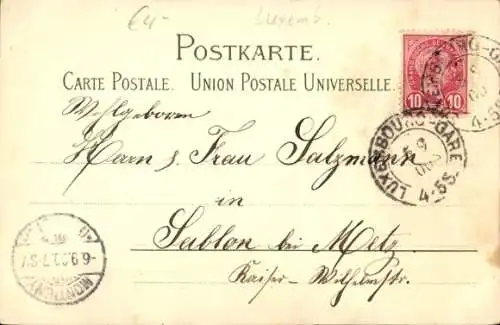 €4,- Luxemb.
POSTKARTE.
CARTE POSTALE. UNION POSTALE UNIVERSELLE.
10 10
LUXEMBOURG-GARE
4-5S
Wohlgeboren
Herrn & Frau Salzmann
in
Sablon bei Metz
Kaiser-Wilhelmstr.